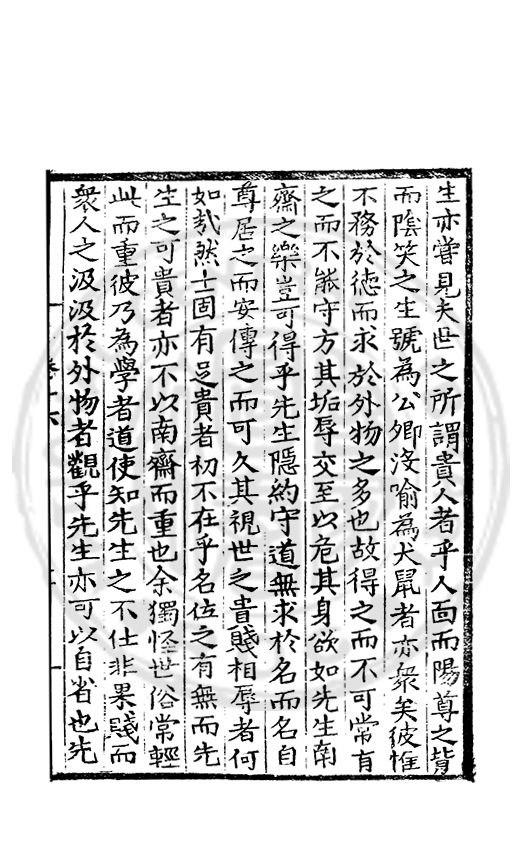 生亦嘗見夫世之所謂貴人者乎人面而陽尊之背
而陰笑之生號為公卿沒喻為犬鼠者亦衆矣彼惟
不務於徳而求於外物之多也故得之而不可常有
之而不能守方其垢辱交至以危其身欲如先生南
齋之樂豈可得乎先生隱約守道無求於名而名自
尊居之而安傳之而可久其視世之貴賤相辱者何
如哉然士固有足貴者初不在乎名位之有無而先
生之可貴者亦不以南齋而重也余獨怪世俗常輕
此而重彼乃為學者道使知先生之不仕非果賤而
衆人之汲汲於外物者觀乎先生亦可以自省也先
卷十六